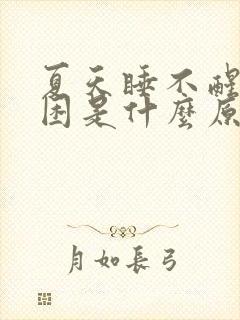 夏天睡不醒
困是什麽原
月如長弓